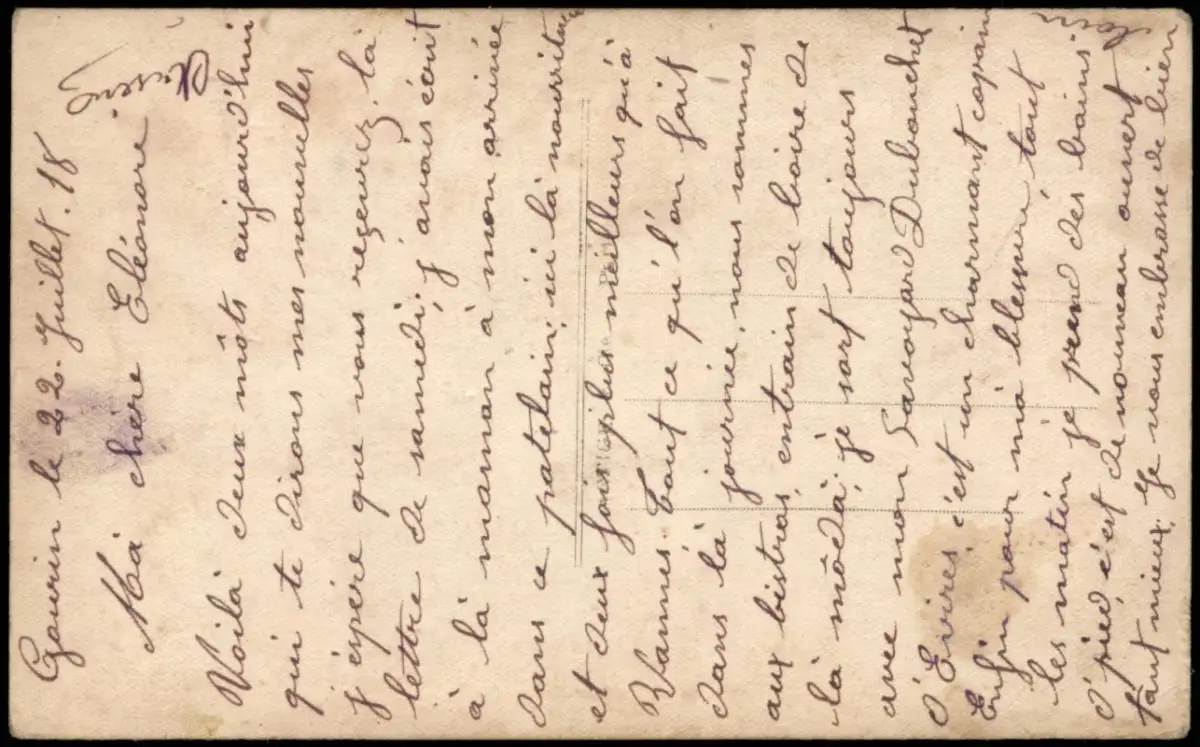 Gourin le 22. Juillet. 18
Mà chère Eléonore
Voilà deux môts aujourd'hui
qui te dirons mes nouvelles
j'espère que vous reçevrez là
lettre de samedi, j'avais écrit
à là maman à mon arrivée
dans ce patelain, ici là nourriture
et deux fois plus meilleurs qu'à
Vannes. Tout ce qu'l'on fait
dans là journée, nous sommes
aux bistras, entrain de boire de
là môdà, je sort toujours
avec mon Savoyard Dubouchet
d'Evires, c'est un charmant copain
Enfin pour mà blessure, tout
les matin je prend des bains
d'pied c'est de nouveau ouvert
tant mieux. Je vous embrasse de bien
loin